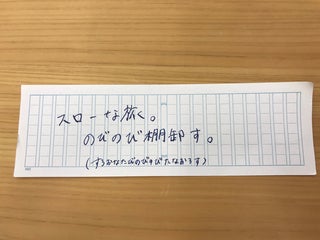 スローな旅。
のびのび棚卸す。
(すろおなたびのびのびたなおろす)